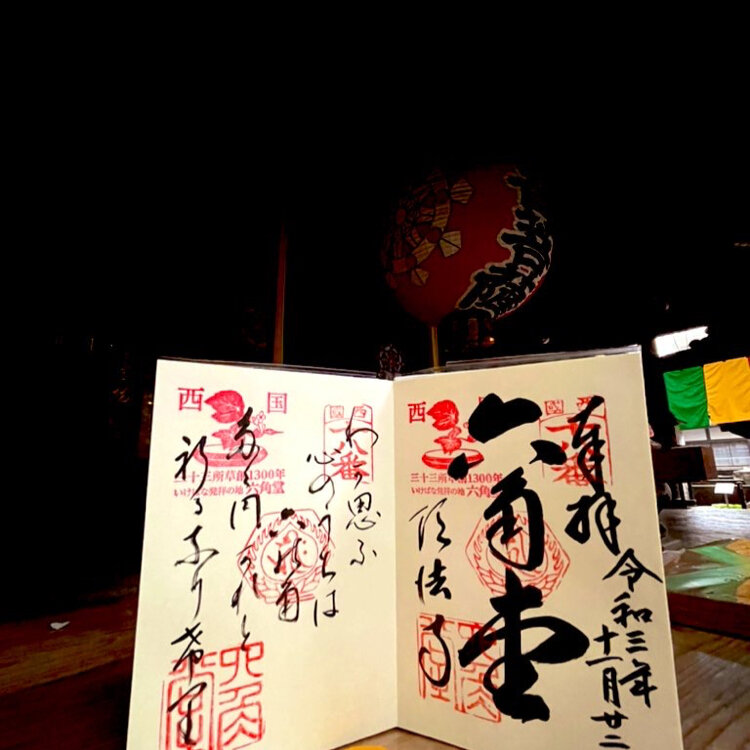 菩薩
奉拝
令和三年
十一月廿二
西国
十八番
六角堂
頂法寺
西国
三十三所草創1300年
いけばな発祥の地 六角
わが思ふ
心のうちは
六の角
円かれと
祈るなり希里
西国
十八番
西国
三十三所草創1300年
いけばな発祥の地 六角堂